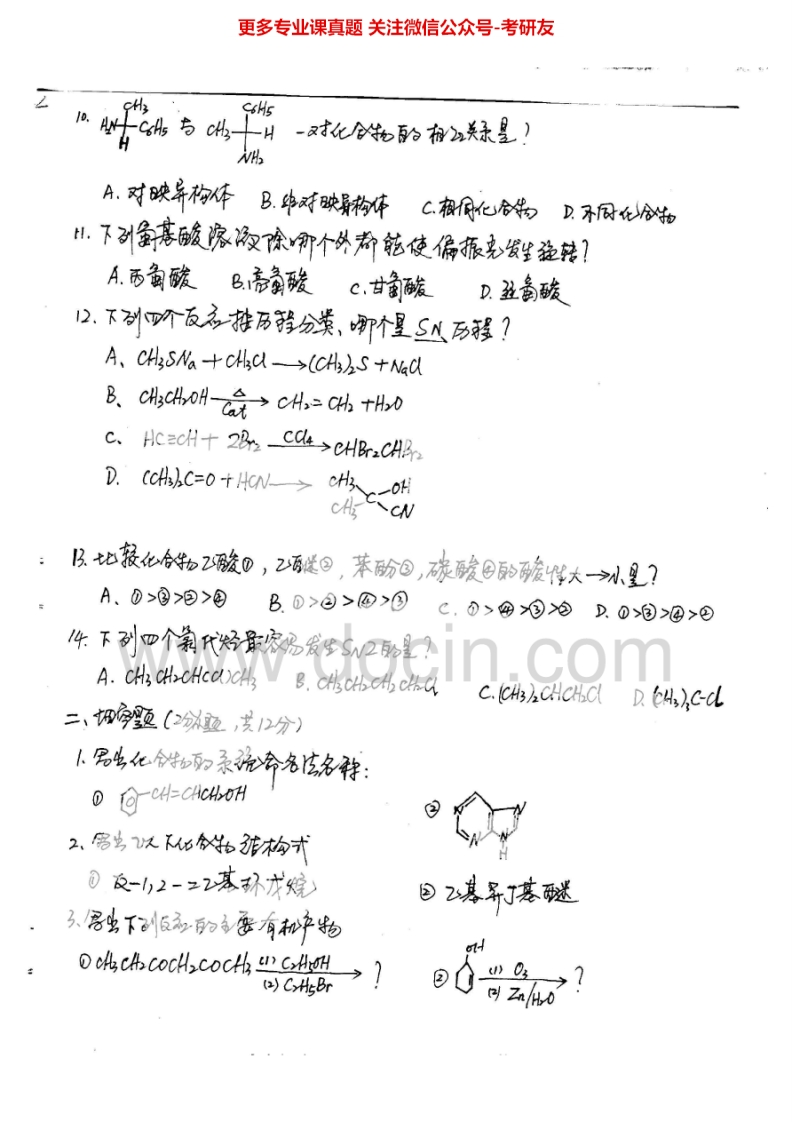 更多专业课真题 关注微信公众号-考研友
10. H₂N CH₃ C₆H₅ H 与 CH₃ C₆H₅ H NH₂ 一对化合物的相互关系是?
A. 对映异构体 B. 非对映异构体 C. 相同化合物 D. 不同化合物
11. 下列氨基酸溶液除哪个外都能使偏振光发生旋转?
A. 丙氨酸 B. C. 甘氨酸 D. 氨酸
12. 下列四个反应按历程分类、哪个是 SN 历程?
A、CH₃SNa + CH₃Cl ⟶ (CH₃)₂S + NaCl
B、CH₃CH₂OH △ Cat → CH₂=CH₂ + H₂O
C、HC≡CH + 2Br₂ CCl₄ → CHBr₂CHBr₂
D. (CH₃)₂C=O + HCN ⟶ CH₃ CH₃ C OH CN
13. 比较化合物乙酸①, 乙醚②, 苯酚③, 碳酸④的酸性大→小是?
A、①>③>②>④ B. ①>②>④>③ C. ①>④>③>② D. ①>③>④>②
14. 下列四个氯代烃最容易发生SN2的是?
A. CH₃CH₂CHCl)CH₃ B. CH₃CH₂CH₂CH₂Cl C. (CH₃)₂CHCH₂Cl D. (CH₃)₃C-Cl
www.docin.com
二、填空题(2分/题, 共12分)
1. 写出化合物的系统命名法名称:
① CH=CHCH₂OH ② N N N N H
2、写出以下化合物结构式
① 反-1,2-二乙基环戊烷 ② 乙基异丁基醚
3、写出下列反应的主要有机产物
① CH₃CH₂COCH₂COCH₃ (1) C₂H₅OH (2) C₂H₅Br → ? ② OH (1) O₃ (2) Zn/H₂O → ?